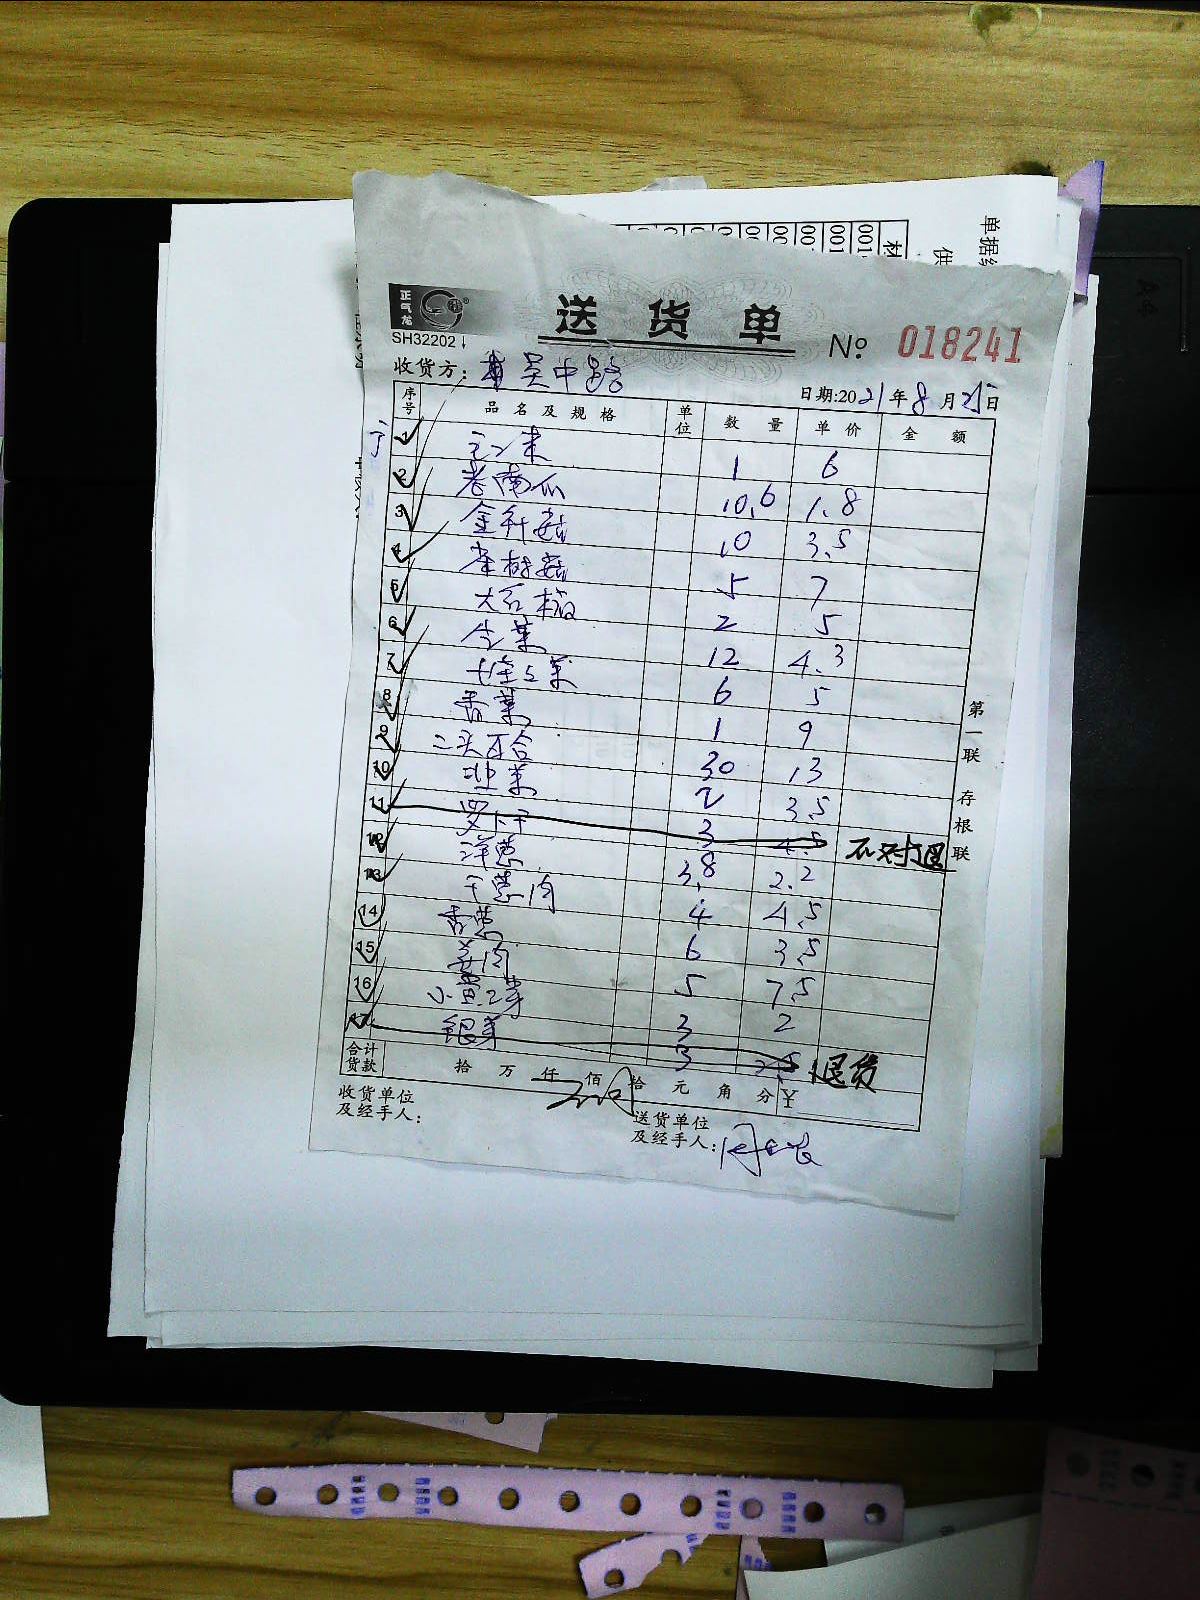 单据
供
材
001
001
00
正气龙
SH32202
送货单
№ 018241
收货方: 吴中路
日期:2021年8月25日
序号 品名及规格 单位 数量 单价 金额
1 玉米 1 6
2 老南瓜 10.6 1.8
3 金针菇 10 3.5
4 茶树菇 5 7
5 大石榴 2 5
6 生菜 12 4.3
7 6 5
8 香菜 1 9
9 二头百合 30 13
10 韭菜 2 3.5
11 罗卜干 3 4.5 不对退
12 洋葱 3.8 2.2
13 干葱肉 4 4.5
14 香葱 6 3.5
15 姜肉 5 7.5
16 小黄豆芽 3 2
17 银芽 3 2.5 退货
合计货款 拾 万 仟 佰 拾 元 角 分 ¥
收货单位及经手人:
送货单位及经手人:
第一联 存根联
A4